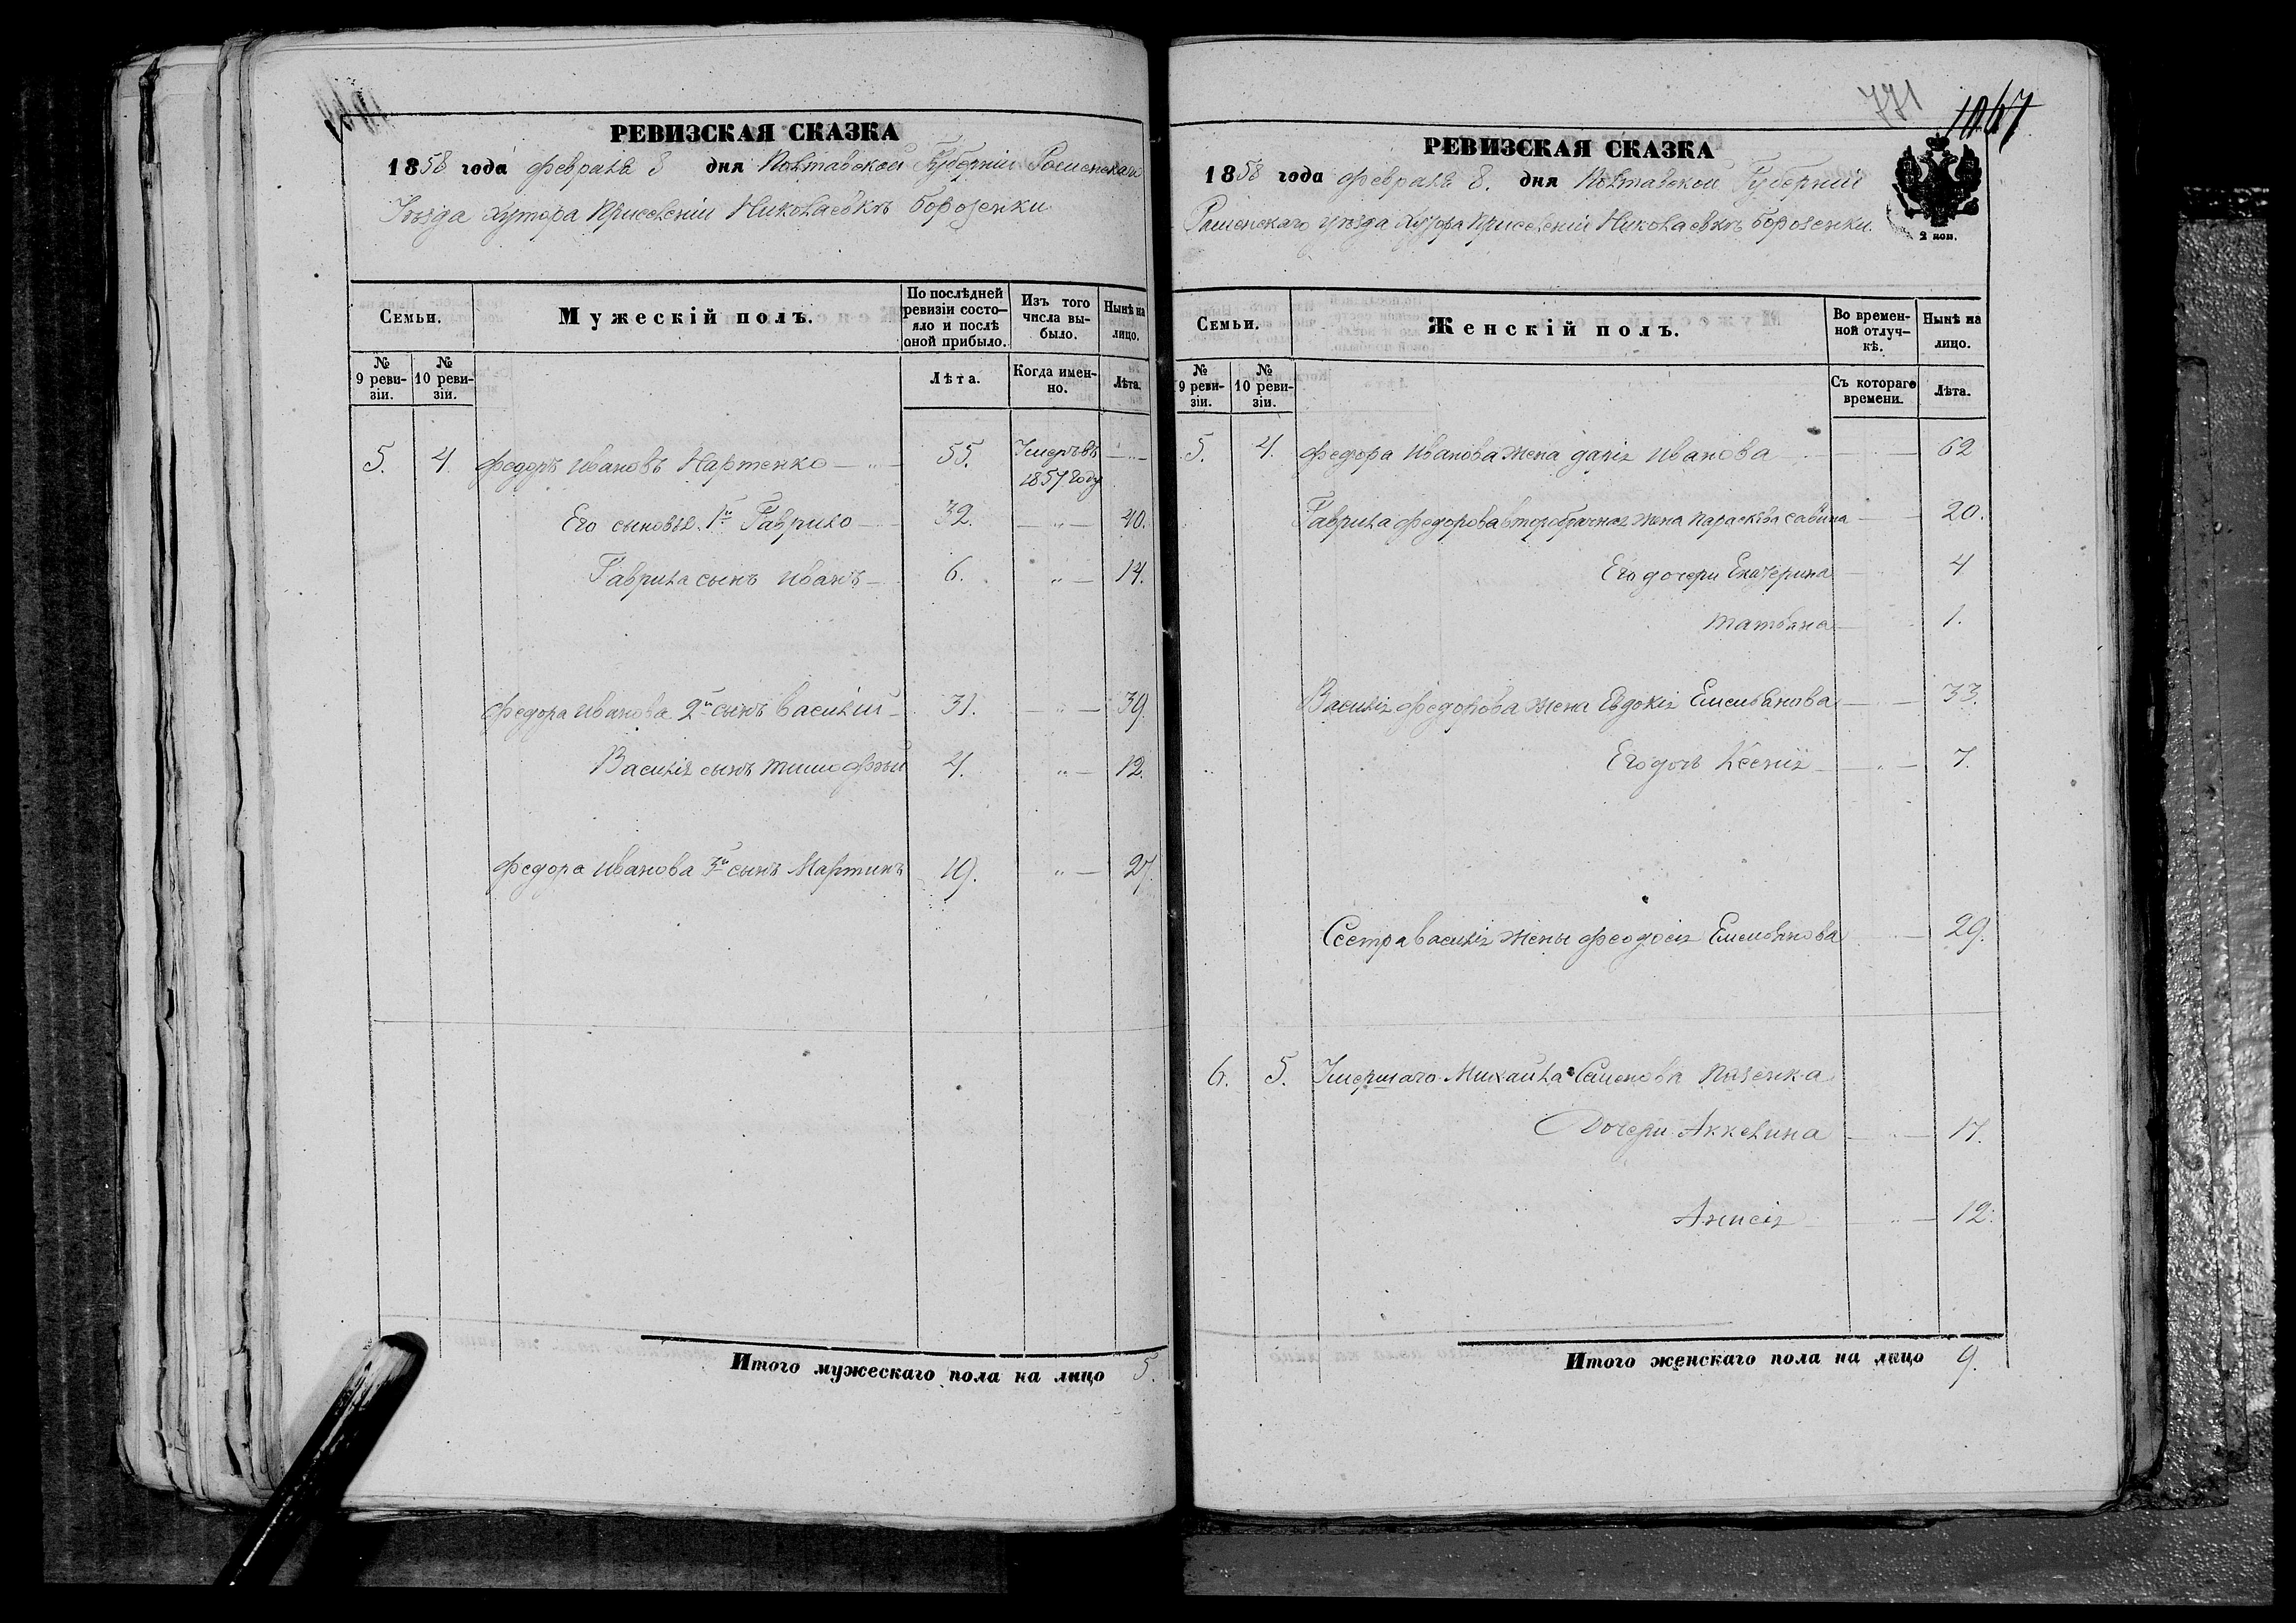 РЕВИЗСКАЯ СКАЗКА
1858 года февраля 8 дня Полтавской Губерніи Роменскаго
Уѣзда Хутора при селеніи Николаевкѣ Борозенки
Семьи.
Мужескій полъ.
По послѣдней ревизіи состояло и послѣ оной прибыло.
Изъ того числа выбыло.
Нынѣ на лицо.
№ 9 ревизіи.
№ 10 ревизіи.
Лѣта.
Когда именно.
Лѣта.
5. 4. Федоръ Ивановъ Мартенко 55. Умеръ въ 1857 году
Его сыновья 1й Гаврило 32. 40.
Гаврила сынъ Иванъ 6. 14.
Федора Иванова 2й сынъ Василий 31. 39
Василія сынъ Тимофѣй 4. 12.
Федора Иванова 3й сынъ Мартинъ 19. 27
Итого мужескаго пола на лицо 5.
771
1047
РЕВИЗСКАЯ СКАЗКА
1858 года февраля 8. дня Полтавской Губерніи
Роменскаго уѣзда Хутора при селеніи Николаевкѣ Борозенки.
2 коп.
Семьи.
Женскій полъ.
Во временной отлучкѣ.
Нынѣ на лицо.
№ 9 ревизіи.
№ 10 ревизіи.
Съ котораго времени.
Лѣта.
5. 4. Федора Иванова жена Дарія Иванова 62
Гаврила Федорова второбрачная жена Параскева Савина 20.
Его дочери Екатерина 4
Татьяна 1.
Василія Федорова жена Евдокія Емельянова 33.
Его дочь Ксенія 7.
Сестра Василія жены Феодосія Емельянова 29.
6. 5. Умершаго Михайла Семенова
Дочери Аккелина 17.
Анисія 12.
Итого женскаго пола на лицо 9.